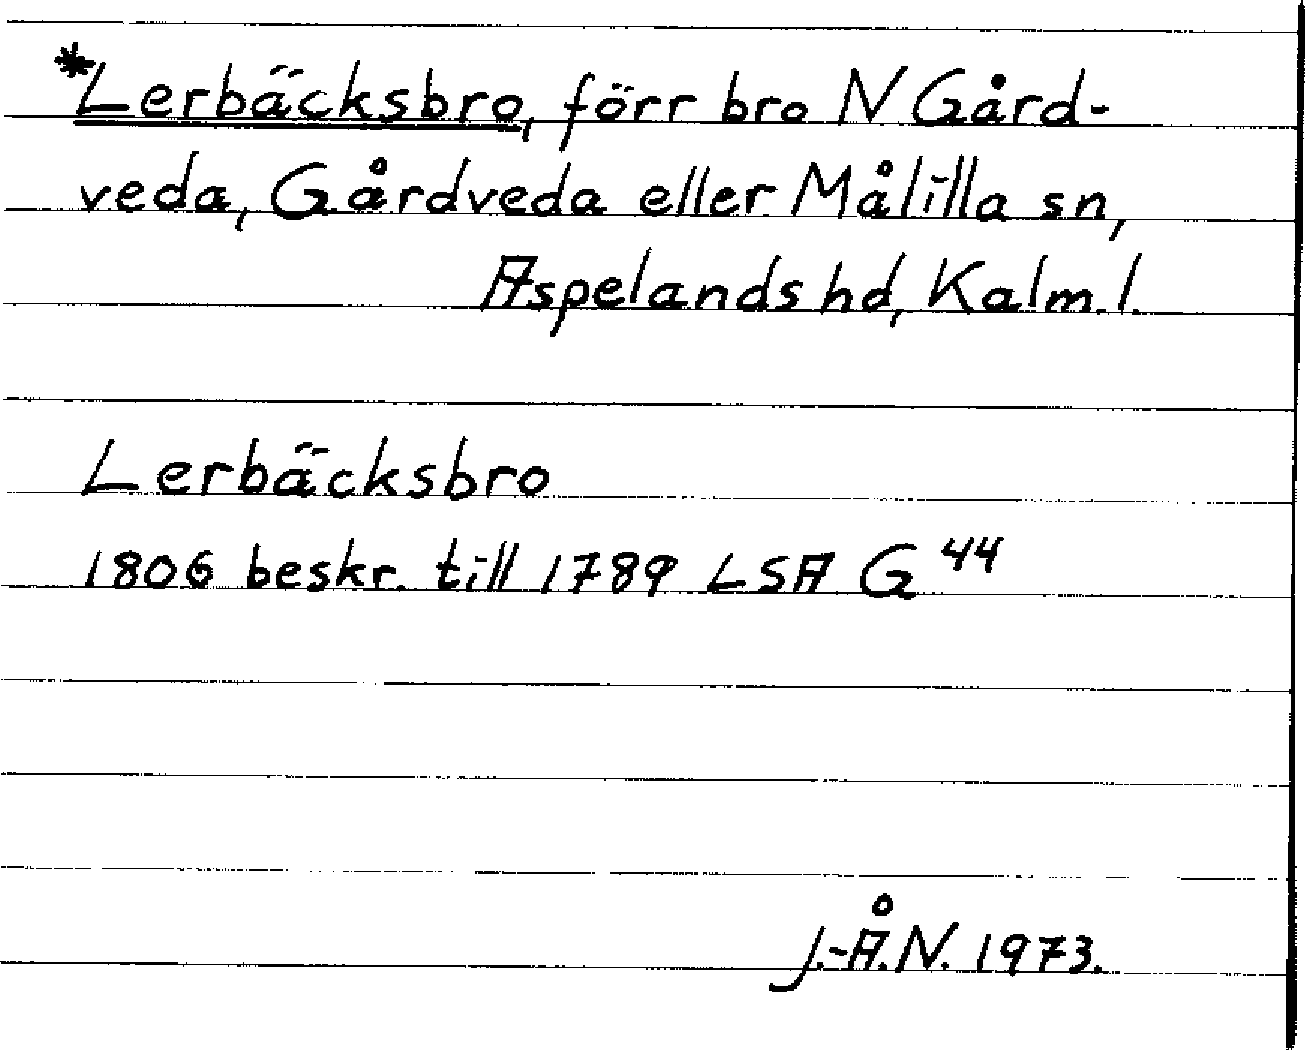 *Lerbäcksbro, förr bro N Gård-
veda, Gårdveda eller Målilla sn,
Aspelands hd, Kalm. l.
Lerbäcksbro
1806 beskr. till 1789 LSA G 44
J.-Å. N. 1973.